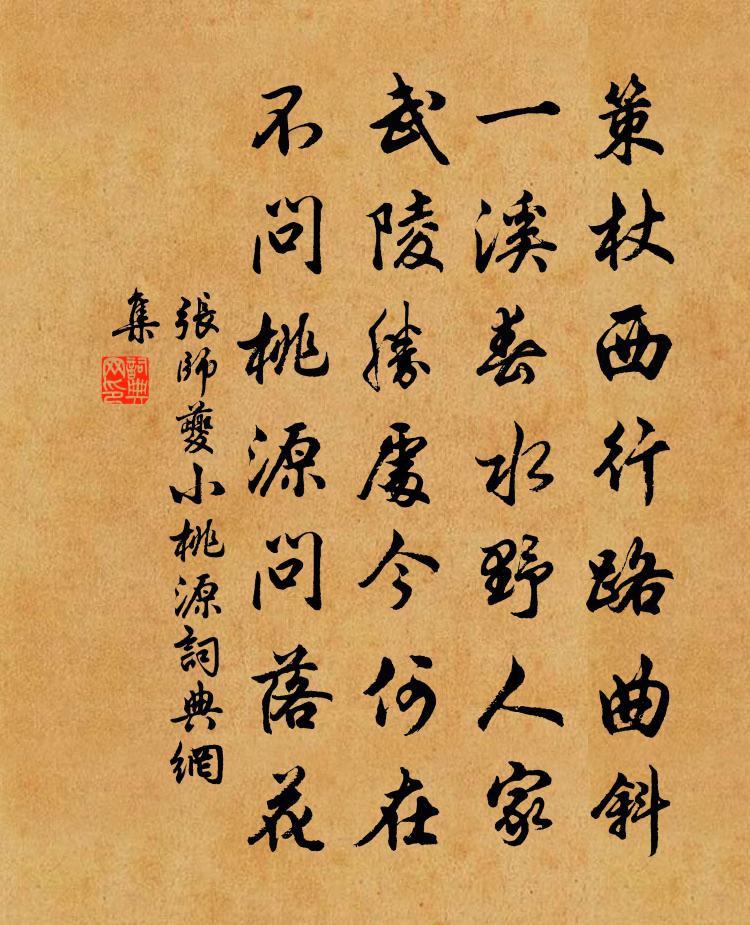 策杖西行路曲斜
一溪春水野人家
武陵勝處今何在
不問桃源問落花
張師夔小桃源詞典網
集
詞典
网印